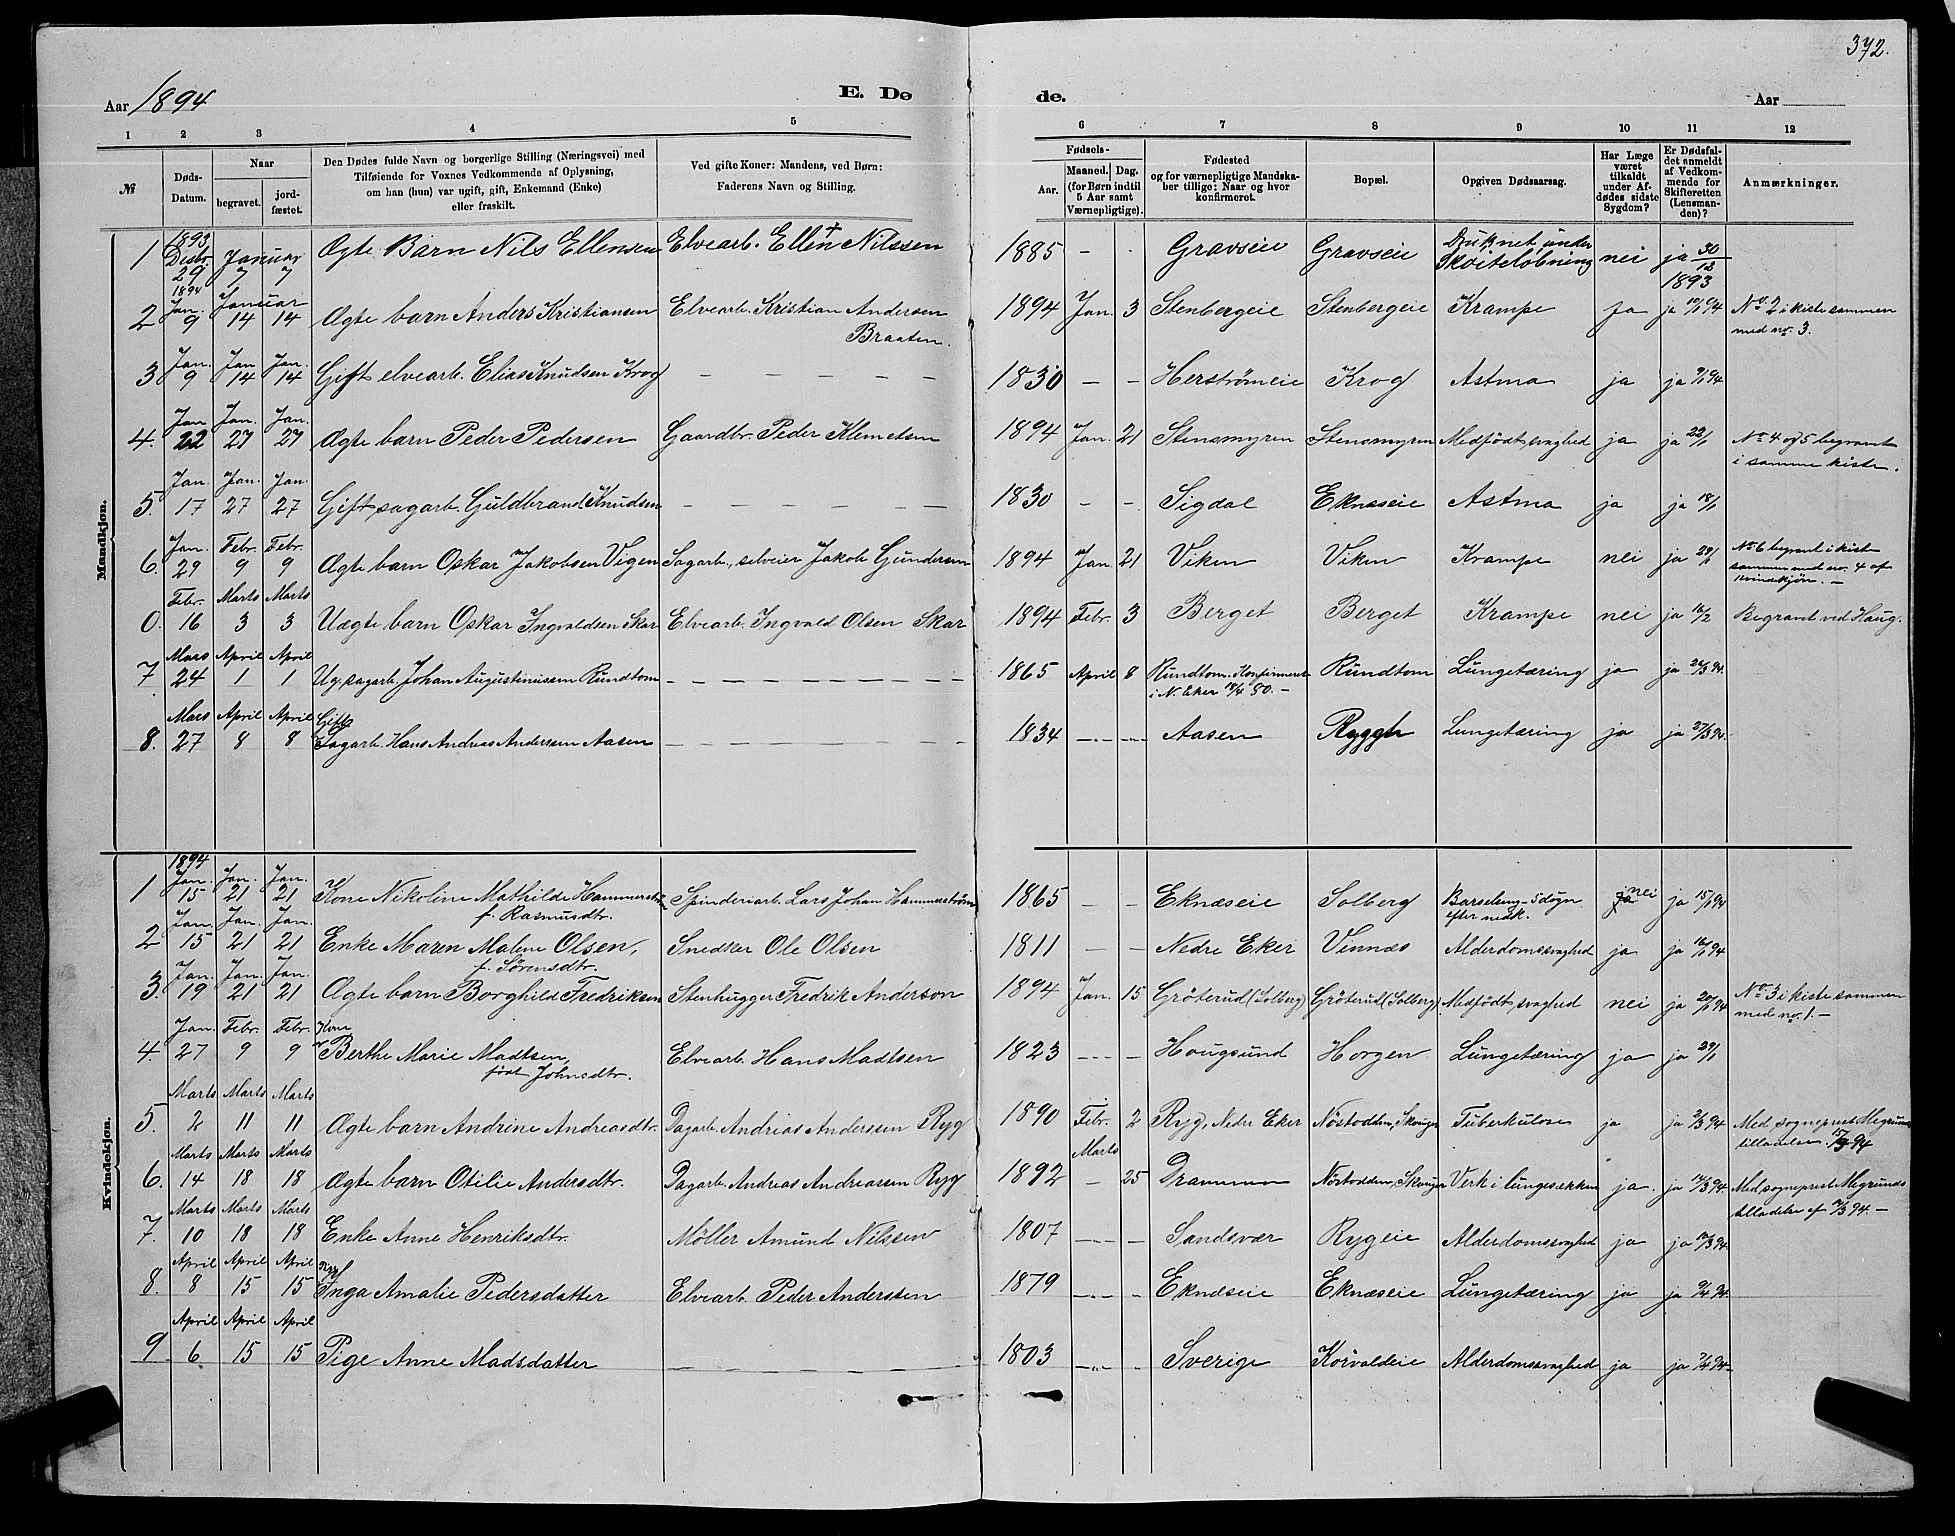 372.
Aar 1894
E. Dø
de.
Aar
1 2 3 4 5 6 7 8 9 10 11 12
№
Døds-Datum.
Naar
begravet.
jord-fæstet.
Den Dødes fulde Navn og borgerlige Stilling (Næringsvei) med
Tilføiende for Voxnes Vedkommende af Oplysning,
om han (hun) var ugift, gift, Enkemand (Enke)
eller fraskilt.
Ved gifte Koner: Mandens, ved Børn:
Faderens Navn og Stilling.
Fødsels-
Aar.
Maaned. Dag.
(for Børn indtil
5 Aar samt
Værnepligtige).
Fødested
og for værnepligtige Mandska-
ber tillige: Naar og hvor
konfirmeret.
Bopæl.
Opgiven Dødsaarsag.
Har Læge
været
tilkaldt
under Af-
dødes sidste
Sygdom?
Er Dødsfal-
det anmeldt
af Vedkom-
mende for
Skifteretten
(Lensman-
den)?
Anmærkninger.
Mandkjøn.
1 1893 Decbr. 29 Januar 7 7 Ægte Barn Nils Ellensen Elvearb. Ellen Nilssen 1885 – – Gravseie Gravseie Druknet under Skøiteløbning nei ja 30/12 1893
2 1894 Jan. 9 Januar 14 14 Ægte barn Anders Kristiansen Elvearb. Kristian Andersen Braaten. 1894 Jan. 3 Stenbergeie Stenbergeie Krampe ja ja 10/1 94 No. 2 i kiste sammen med no. 3.
3 Jan. 9 Jan 14 Jan. 14 Gift elvearb. Elias Knudsen Krog – – – – – 1830 – – Herstrømeie Krog Astma ja ja 9/1 94
4. Jan 22 Jan. 27 Jan. 27 Ægte barn Peder Pedersen Gaardbr. Peder Klemetsen 1894 Jan. 21 Stensmyren Stensmyren Medfødt svaghed ja ja 22/1 No 4 og 5 begravet i samme kiste.
5. Jan. 17 Jan. 27 Jan. 27 Gift sagarb. Guldbrand Knudsen – – – – – 1830 – – Sigdal Eknæseie Astma ja ja 18/1
6. Jan. 29 Febr. 9 Febr. 9 Ægte barn Oskar Jakobsen Vigen Sagarb., selveier Jakob Gundersen 1894 Jan 21 Viken Viken Krampe nei ja 29/1 No 6 begravet i kiste sammen med no. 4 af kvindekjøn. –
0. Febr. 16 Marts 3 Marts 3 Uægte barn Oskar Ingvaldsen Skar Elvearb. Ingvald Olsen Skar 1894 Febr. 3 Berget Berget Krampe nei ja 16/2 Begravet ved Haug.
7 Mars 24 April 1 April 1 Ug. sagarb. Johan Augustinussen Rundtom – – – – – 1865 April 8 Rundtom. Konfirmeret i N. Eker 80. – Rundtom Lungetæring ja ja 26/3 94.
8. Mars 27 April 8 April 8 Gift Sagarb. Hans Andreas Anderssen Aasen – – – – – 1834 – – Aasen Ryggh Lungetæring ja ja 27/3 94.
Kvindekjøn.
1 1894 Jan. 15 Jan. 21 Jan. 21 Kone Nikoline Mathilde Hammerstrøm f. Rasmusdtr. Spinderiarb. Lars Johan Hammerstrøm 1865 – – Eknæseie Solberg Barselseng – 5 døgn efter nedk. nei ja 15/1 94
2 Jan. 15 Jan. 21 Jan. 21 Enke Maren Malene Olsen, f. Sørensdtr. Snedker Ole Olsen 1811 – – Nedre Eker Vennæs Alderdomssvaghed ja ja 16/1 94
3. Jan. 19 Jan. 21 Jan. 21 Ægte barn Borghild Fredriksen Stenhugger Fredrik Anderson 1894 Jan. 15 Grøterud (Solberg) Grøterud (Solberg) Medfødt svaghed nei ja 20/1 94 No. 3 i kiste sammen med no. 1. –
4. Jan. 27 Febr. 9 Febr. 9 Kone Berthe Marie Madtsen, født Johnsdtr. Elvearb. Hans Madtsen 1823 – – Hougsund Horgen Lungetæring ja ja 29/1
5. Marts 2 Marts 11 Marts 11 Ægte barn Andrine Andreasdtr. Dagarb. Andreas Anderssen Ryg 1890 Febr. 2 Ryg, Nedre Eker Nøstodden, Skouger Tuberkulose ja ja 2/3 94 Med sogneprest Megrunds tilladelse 94
6. Marts 14 Marts 18 Marts 18 Ægte barn Otilie Andersdtr. Dagarb. Andreas Andreassen Ryg 1892 Marts – 25 Drammen Nøstodden, Skouger Verk i lungesækken ja. ja 14/3 94. Med sogneprest Megrunds tilladelse af 94. –
7. Marts 10 Marts 18 Marts 18 Enke Anne Henriksdtr. Møller Amund Nilssen 1807 – – Sandsvær Rygeie Alderdomssvaghed ja ja 10/3 94.
8. April 8 April 15 April 15 Inga Amalie Pedersdatter Elvearb. Peder Anderssen 1879 – – Eknæseie Eknæseie Lungetæring ja ja 9/4 94.
9 April 6 April 15 April 15 Pige Anne Madsdatter – – – – – 1803 – – Sverige Korvaldeie Alderdomssvaghed ja ja 7/4 94 –